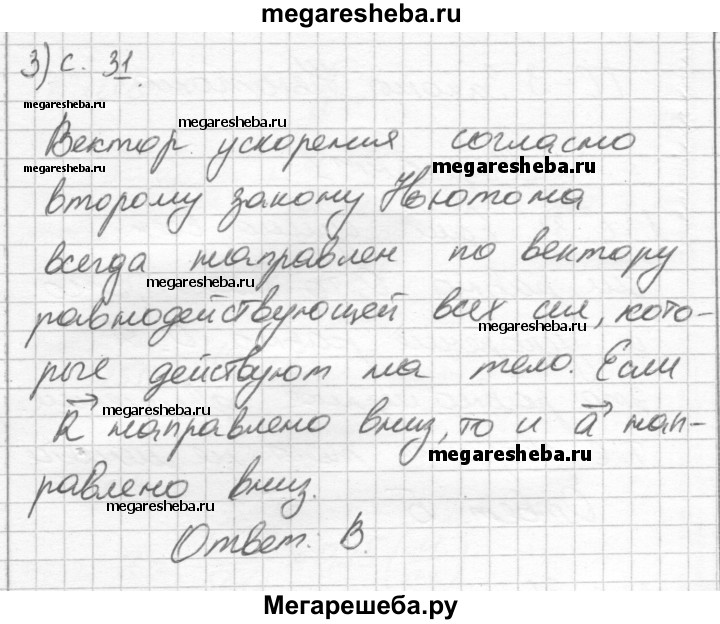 megaresheba.ru
3) с. 31.
megaresheba.ru
megaresheba.ru
Вектор ускорения согласно
megaresheba.ru
megaresheba.ru
второму закону Ньютона
всегда направлен по вектору
megaresheba.ru
равнодействующей всех сил, кото-
megaresheba.ru
рые действуют на тело. Если
megaresheba.ru
R направлено вниз, то и a нап-
megaresheba.ru
равлено вниз.
megaresheba.ru
Ответ: В.
Мегарешеба.ру